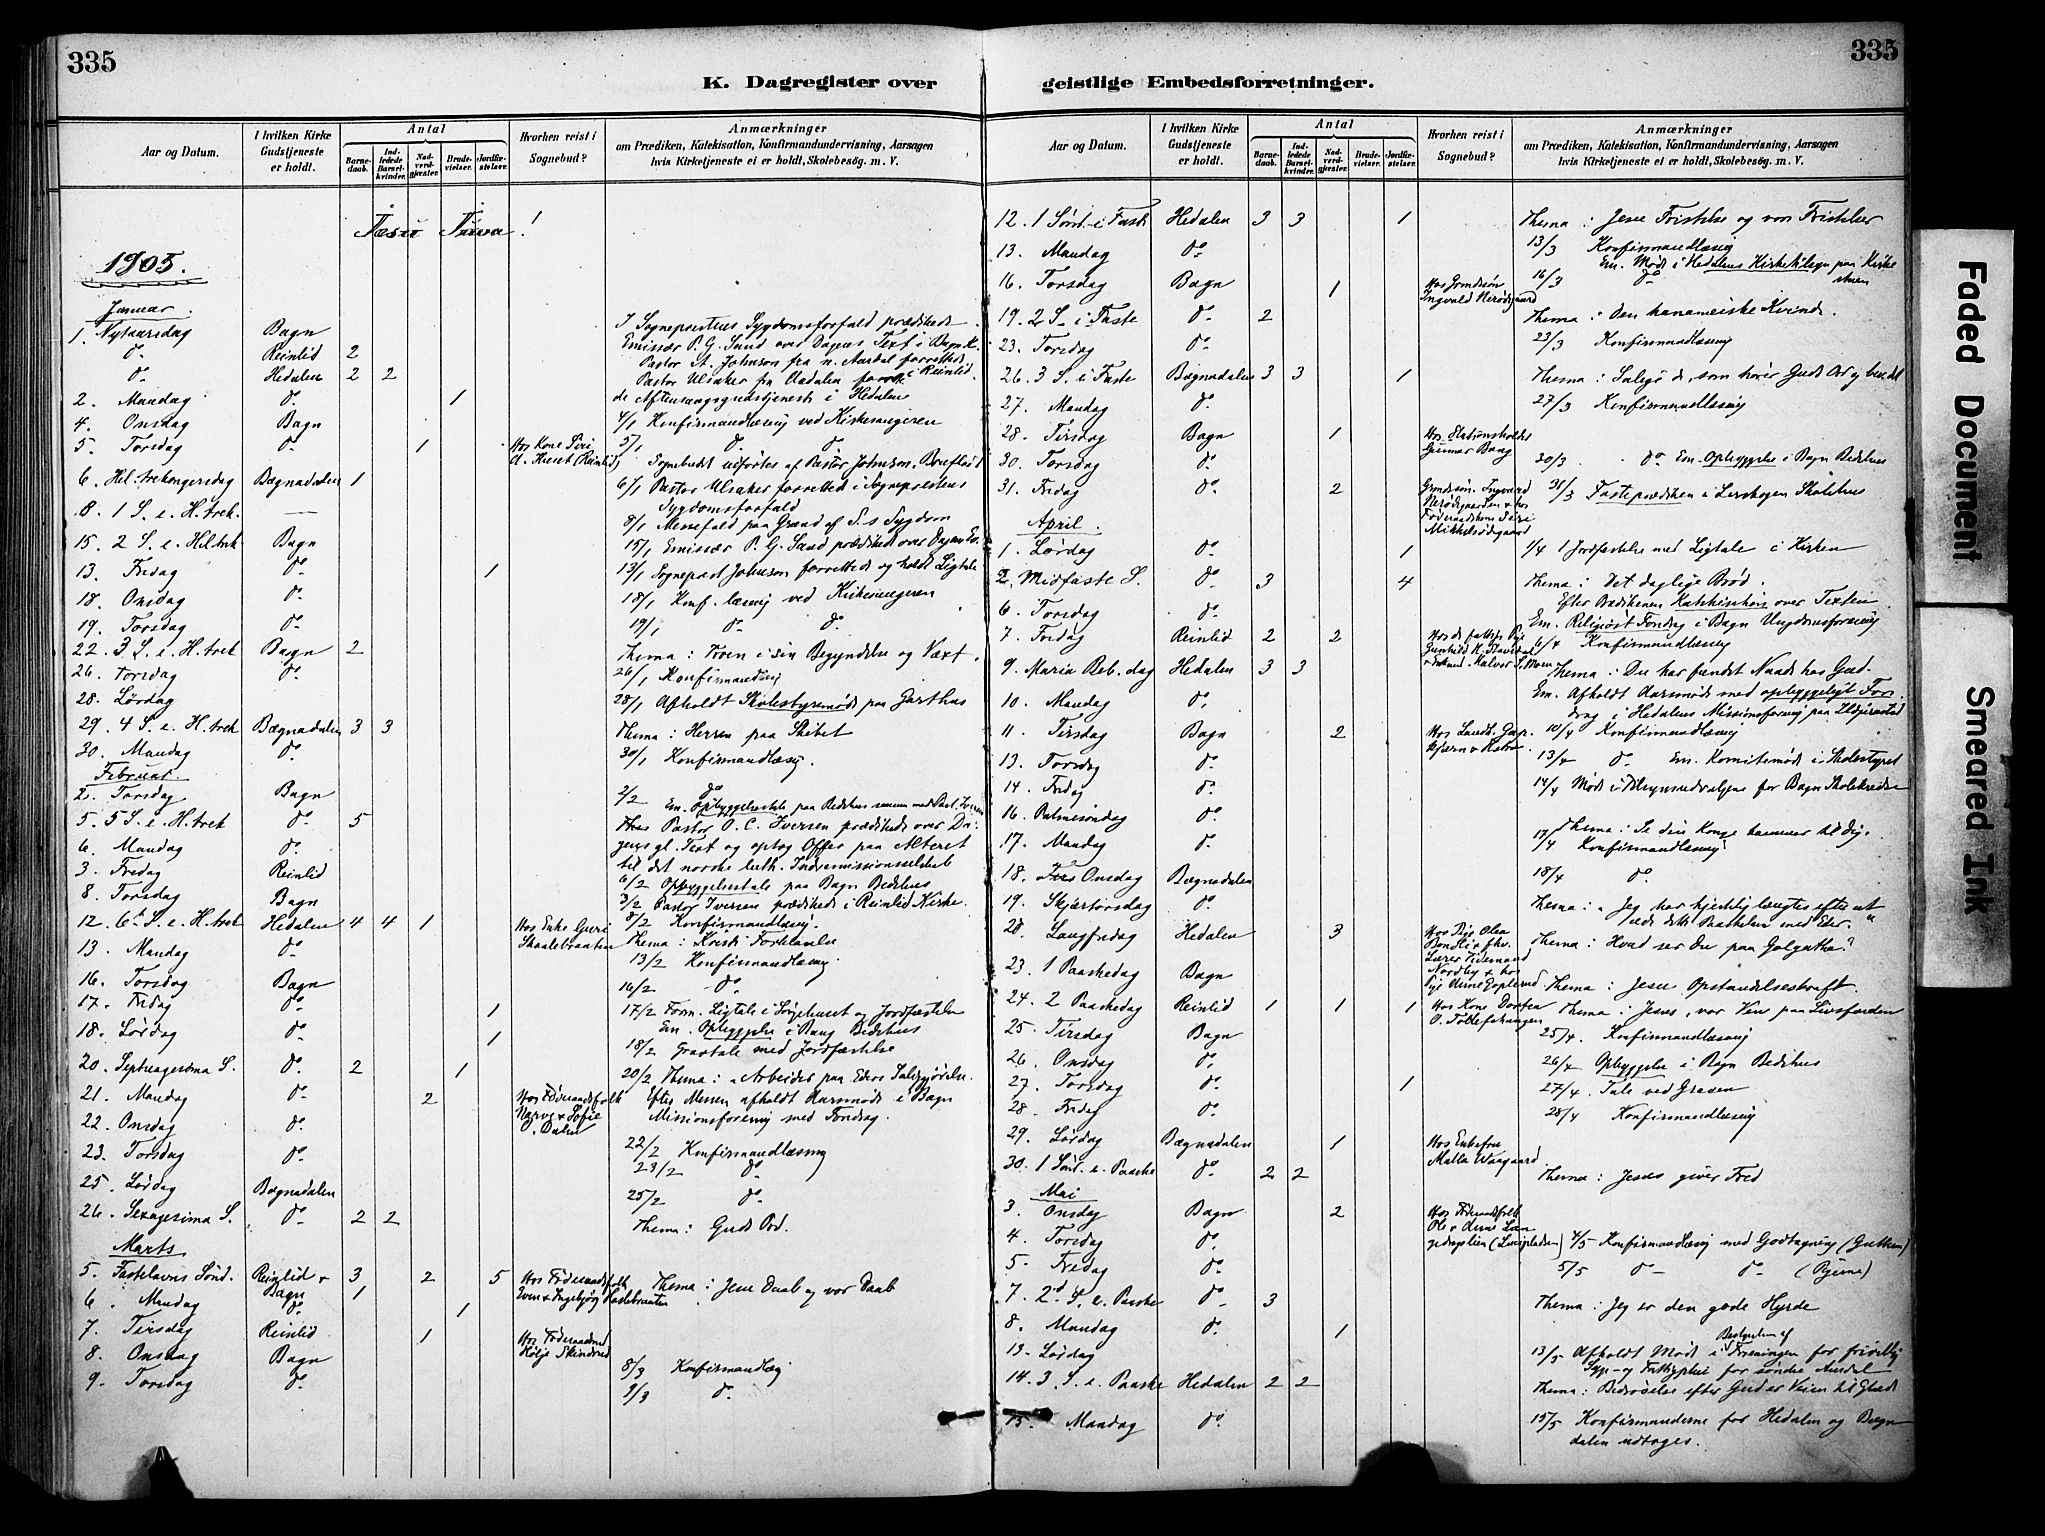 335
335
K. Dagregister over geistlige Embedsforretninger.
Aar og Datum.
I hvilken Kirke Gudstjeneste er holdt.
Antal
Barnedaab.
Indledede Barselkvinder.
Nadverdgjæster.
Brudevielser.
Jordfæstelser.
Hvorhen reist i Sognebud?
Anmærkninger
om Prædiken, Katekisation, Konfirmandundervisning, Aarsagen
hvis Kirketjeneste ei er holdt, Skolebesög. m. V.
1905.
Januar.
1. Nytaarsdag Bagn I Sognepræstens Sygdomsforfald prædikede
do Reinlid 2 Emissær P. G. Sand over Dagens Text i Bagn K.
Pastor St. Johnson fra n. Aurdal forrettede i Reinlid.
do Hedalen 2 2 Pastor Ulsaker fra Aadalen
2. Mandag do 1 de Aftensangsgudstjeneste i Hedalen
4. Onsdag Bagn 4/1 Konfirmandlæsning ved Kirkesangeren
5. Torsdag do 1 Hos Kone Siri 5/1 do do
Sognebudet udførtes af Pastor Johnson,
6. Hel. trekongersdag Bægnadalen 1 6/1 Pastor Ulsaker forrettede i Sognepræstens
Sygdomsforfald
8. 1 S. e. H. trek. — 8/1 Messefald paa Grund af S.s Sygdom
15. 2 S. e. Hel. trek Bagn 15/1 Emissær P. G. Sand prædikede over Dagens Ev.
13. Fredag do 1 13/1 Sognepræst Johnson forrettede og holdt Ligtale
18. Onsdag do 18/1 Konf. læsning ved Kirkesangeren
19. Torsdag do 19/1 do do
22. 3 S. e. H. trek Bagn 2 Thema: Troen i sin Begyndelse og Væxt.
26. Torsdag do 26/1 Konfirmandlæsning
28. Lørdag 28/1 Afholdt Skolestyremøde paa Garthus
29. 4 S. e. H. trek Bægnadalen 3 3 Thema: Herren paa Skibet
30. Mandag do 30/1 Konfirmandlæsning.
Februar.
2. Torsdag Bagn 2/2 do
Em. Opbyggelsestale paa Bedehus sammen med Past. Iversen
5. 5 S. e. H. trek do 5 Pastor O. C. Iversen prædikede over Dagens
gl. Text og optog Offer paa Alteret
til det norske luth. Indremissionsselskab
6. Mandag do 6/2 Opbyggelsestale paa Bagn Bedehus
3. Fredag Reinlid 3/2 Pastor Iversen prædikede i Reinlid Kirke.
8. Torsdag Bagn 8/2 Konfirmandlæsning.
12. 6te S. e. H. trek Hedalen 4 4 1 Hos Enke Guri Skaalebraaten Thema: Kristi Forklarelse
13. Mandag do 13/2 Konfirmandlæsning.
16. Torsdag Bagn 16/2 do
17. Fredag do 1 17/2 Form. Ligtale i Sørgehuset og Jordfæstelse
Em. Opbyggelse i Bang Bedehus
18. Lørdag do 1 18/2 Gravtale med Jordfæstelse
20. Septuagesima S. do 2 1 20/2 Thema: „Arbeider paa Eders Saliggjørelse.
21. Mandag do 2 Hos Føderaadsfolk Efter Messen afholdt Aarsmøde i Bagn
22. Onsdag do O. Dalen Missionsforening med Foredrag.
22/2 Konfirmandlæsning
23. Torsdag do 23/2 do
25. Lørdag Bægnadalen 25/2 do
26. Sexagesima S. do 2 2 Thema: Guds Ord.
Marts
5. Fastelavns Sønd. Reinlid + Bagn 3 1 2 5 Hos Føderaadsfolk Thema: Jesu Daab og vor Daab
6. Mandag do 1
7. Tirsdag Reinlid 1 Hos Føderaadsmd
8. Onsdag Bagn 8/3 Konfirmandlæsn.
9. Torsdag do 9/3 do
K. Dagregister over geistlige Embedsforretninger.
Aar og Datum.
I hvilken Kirke Gudstjeneste er holdt.
Antal
Barnedaab.
Indledede Barselkvinder.
Nadverdgjæster.
Brudevielser.
Jordfæstelser.
Hvorhen reist i Sognebud?
Anmærkninger
om Prædiken, Katekisation, Konfirmandundervisning, Aarsagen
hvis Kirketjeneste ei er holdt, Skolebesög. m. V.
12. 1 Sønd. i Faste Hedalen 3 3 1 Thema: Jesu Fristelse og vore Fristelser
13. Mandag do 13/3 Konfirmandlæsning
Em. Møde i Hedalens Kirketilsyn paa Kirkestuen
16. Torsdag Bagn 1 16/3 do
19. 2 S. i Faste do 2 Thema: Den kananæiske Kvinde.
23. Torsdag do 23/3 Konfirmandlæsning
26. 3 S. i Faste Bægnadalen 3 3 1 Thema: Salige de, som hører Guds Ord og bev. det
27. Mandag do 27/3 Konfirmandlæsning
28. Tirsdag Bagn 1 Hos Stationsholder Gunnar Baag
30. Torsdag do 30/3 do Em. Opbyggelse i Bagn Bedehus
31. Fredag do 2 31/3 Fasteprædiken i Leirskogen Skolehus
April.
1. Lørdag do 1 1/4 1 Jordfæstelse med Ligtale i Kirken
2. Midfaste S. do 3 4 Thema: Det daglige Brød.
Efter Prædikenen Katekisation over Texten
Em. Religiøst Foredrag i Bagn Ungdomsforening
6. Torsdag do 6/4 Konfirmandlæsning
7. Fredag Reinlid 2 2
9. Maria Beb. dag Hedalen 3 3 Thema: Du har fundet Naade hos Gud.
Em. Afholdt Aarsmøde med opbyggeligt Fore-
drag i Hedalens Missionsforening paa
10. Mandag do 10/4 Konfirmandlæsning
11. Tirsdag Bagn 2
13. Torsdag do 13/4 do Em. Komitemøde i Skolestyret
14. Fredag do 14/4 Møde i Tilsynsudvalgene for Bagn Skolekredse
16. Palmesøndag do Thema: Se din Konge kommer til dig.
17. Mandag do 17/4 Konfirmandlæsning
18. Onsdag Bægnadalen 18/4 do
19. Skjærtorsdag do Thema: „Jeg har hjertelig længtes efter at
æde dette Paaskelam med Eder.“
20. Langfredag Hedalen 3 Hos Pige Olea Thema: Hvad ser Du paa Golgatha?
23. 1 Paaskedag Bagn Thema: Jesu Opstandelseskraft.
24. 2 Paaskedag Reinlid 1 1 1 Hos Kone Dortea Thema: Jesus, vor Ven paa Livsfærden
25. Tirsdag Bagn 25/4. Konfirmandlæsning
26. Onsdag do 26/4 Opbyggelse i Bagn Bedehus
27. Torsdag do 1 27/4. Tale ved Graven
28. Fredag do 28/4 Konfirmandlæsning
29. Lørdag Bægnadalen 1 Hos Enkefru Malla Waagaard
30. 1 Sønd. e. Paaske do 2 2 Thema: Jesus giver Fred
Mai
3. Onsdag Bagn 2 Hos Føderaadsfolk
4. Torsdag do 4/5 Konfirmandlæsning med Godtagning (Gutterne)
5. Fredag do 5/5 do do (Pigerne)
7. 2d S. e. Paaske do 3 Thema: Jeg er den gode Hyrde
8. Mandag do 1
13. Lørdag 13/5 Afholdt Møde i Bestyrelsen af Foreningen for frivillig
Syge- og Fattigpleie for søndre Aurdal
14. 3 S. e. Paaske Hedalen 2 2 Thema: Bedrøvelse efter Gud er Veien til Glæde
15. Mandag do 15/5 Konfirmanderne for Hedalen og Bægna-
dalen udtoges.
Faded Document
Smeared Ink